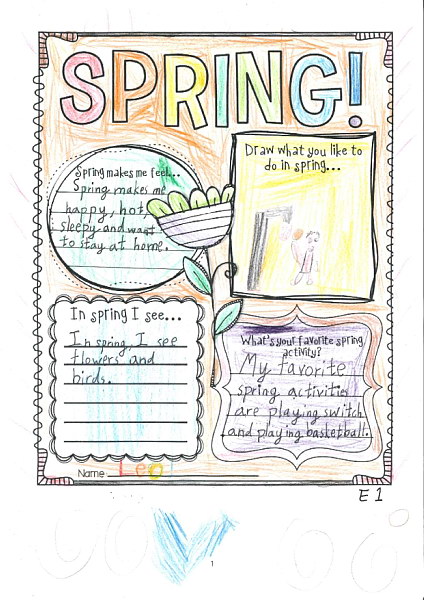 SPRING!
Spring makes me feel...
Spring makes me
happy, hot,
sleepy and want
to stay at home.
Draw what you like to
do in spring...
In spring I see...
In spring, I see
flowers and
birds.
What's your favorite spring
activity?
My favorite
spring activities
are playing switch
and playing basketball.
Name Leo
E1
1